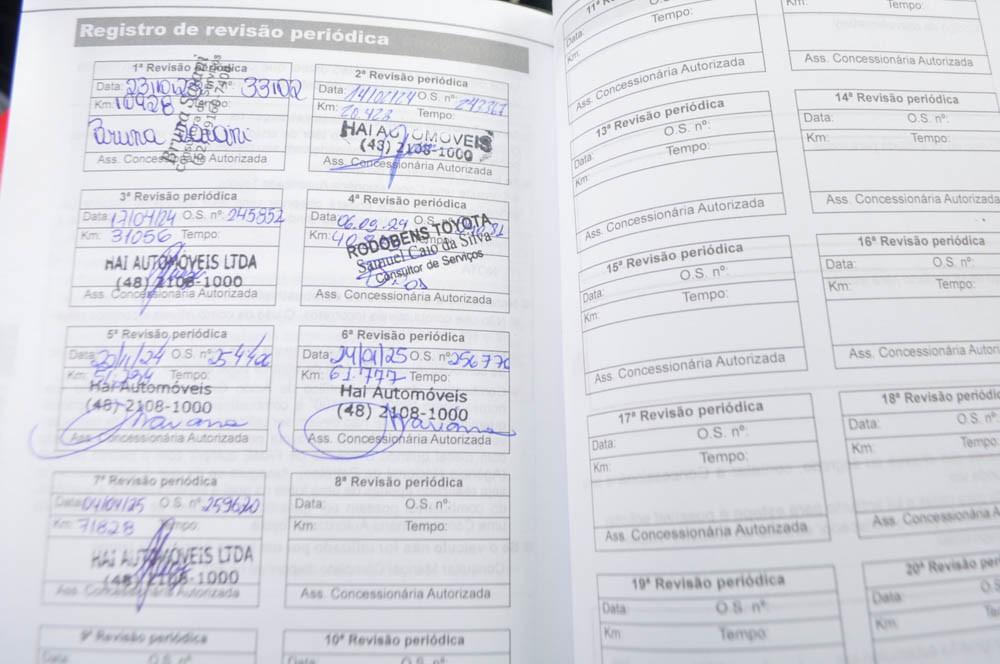 Registro de revisão periódica
1ª Revisão periódica
Data: 23/10/23 33102
Km: 10928
Bruna
Ass. Concessionária Autorizada
2ª Revisão periódica
Data: O.S. nº:
Km: 20.423 Tempo:
HAI AUTOMÓVEIS
(48) 2108-1000
Ass. Concessionária Autorizada
3ª Revisão periódica
Data: 17/04/24 O.S. nº: 245852
Km: 31056 Tempo:
HAI AUTOMÓVEIS LTDA
(48) 2108-1000
Ass. Concessionária Autorizada
4ª Revisão periódica
Data: 06.09.24 O.S. nº
Km: Tempo:
RODOBENS TOYOTA
Samuel Caio da Silva
Consultor de Serviços
Ass. Concessionária Autorizada
5ª Revisão periódica
Data: O.S. nº: 254406
Km: Tempo:
Hai Automóveis
(48) 2108-1000
Mariana
Ass. Concessionária Autorizada
6ª Revisão periódica
Data: 24/01/25 O.S. nº: 256770
Km: 61.777 Tempo:
Hai Automóveis
(48) 2108-1000
Mariana
Ass. Concessionária Autorizada
7ª Revisão periódica
Data: 04/04/25 O.S. nº 259620
Km: 71828 Tempo:
HAI AUTOMÓVEIS LTDA
(48) 2108-1000
Ass. Concessionária Autorizada
8ª Revisão periódica
Data: O.S. nº:
Km: Tempo:
Ass. Concessionária Autorizada
9ª Revisão periódica
10ª Revisão periódica
Data: O.S. nº:
11ª Revisão
Data: O.S. nº:
Km: Tempo:
Ass. Concessionária Autorizada
Km:
Ass. Concessionária Autorizada
13ª Revisão periódica
Data: O.S. nº:
Km: Tempo:
Ass. Concessionária Autorizada
14ª Revisão periódica
Data: O.S. nº:
Km: Tempo:
Ass. Concessionária Autorizada
15ª Revisão periódica
Data: O.S. nº:
Km: Tempo:
Ass. Concessionária Autorizada
16ª Revisão periódica
Data: O.S. nº:
Km: Tempo:
Ass. Concessionária Autorizada
17ª Revisão periódica
Data: O.S. nº:
Km: Tempo:
Ass. Concessionária Autorizada
18ª Revisão periódica
Data: O.S. nº:
Km: Tempo:
Ass. Concessionária Autorizada
19ª Revisão periódica
Data: O.S. nº:
Km: Tempo:
20ª Revisão periódica
Data: O.S. nº:
Km: Tempo: